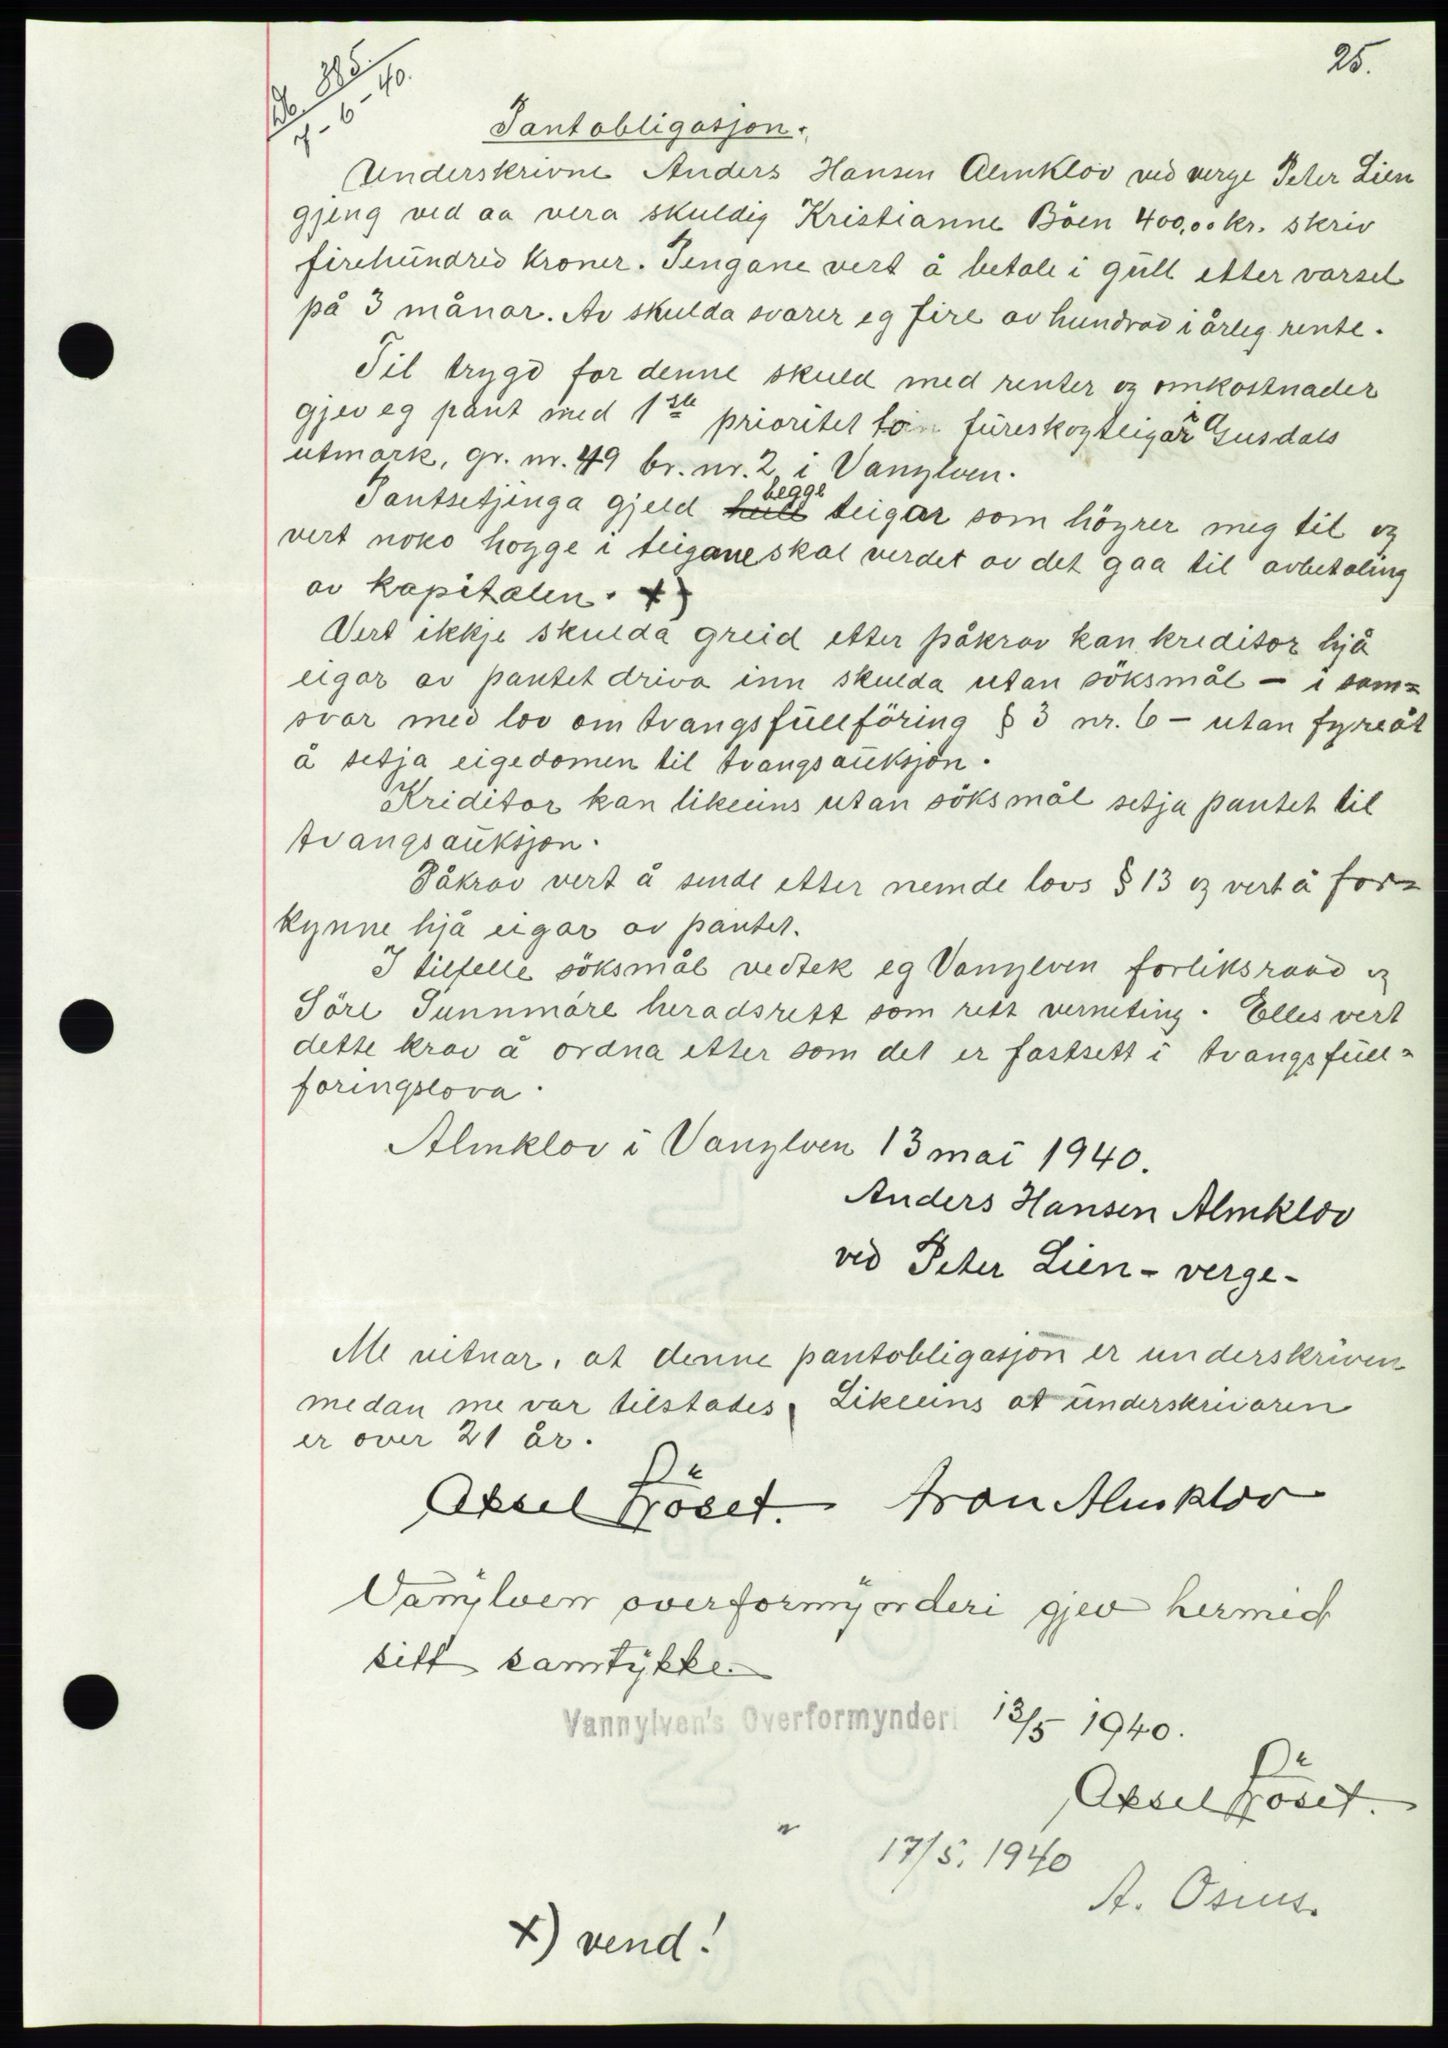 25.
Db. 885.
7-6-40.
Pantobligasjon.
Underskrivne Anders Hansen Almklov ved verge Peter Lien
gjeng ved aa vera skuldig Kristianne Böen 400,00 kr. skriv
firehundred kroner. Pengane vert å betale i gull etter varsel
på 3 månar. Av skulda svarer eg fire av hundrad i årleg rente.
Til trygd for denne skuld med renter og omkostnader
gjev eg pant med 1ste prioritet to füreskogteigar i Gusdals
utmark, gr. nr. 49 br. nr. 2 i Vanylven.
Pantsetjinga gjeld begge teigar som höyrer meg til og
vert noko hogge i teigane skal verdet av det gaa til avbetaling
av kapitalen. x)
Vert ikkje skulda greid etter påkrav kan kreditor hjå
eigar av pantet driva inn skulda utan söksmål - i sam=
svar med lov om tvangsfullföring § 3 nr. 6 - utan fyreåt
å setja eigedomen til tvangsauksjon.
Kriditor kan likeeins utan söksmål setja pantet til
tvangsauksjon.
Påkrav vert å sende etter nemde lovs § 13 og vert å for=
kynne hjå eigar av pantet.
I tilfelle söksmål vedtek eg Vanylven forliksraad og
Söre Sunnmöre heradsrett som rett verneting. Elles vert
dette krav å ordna etter som det er fastsett i tvangsfull=
foringslova.
Almklov i Vanylven 13 mai 1940.
Anders Hansen Almklov
ved Peter Lien - verge -
Me vitnar, at denne pantobligasjon er underskriven
medan me var tilstades, Likeeins at underskrivaren
er over 21 år.
Aksel Pröset. Aron Almklov
Vanylven overformynderi gjev hermed
sitt samtykke.
Vannylven's Overformynderi 13/5 1940.
Aksel Pröset.
" 17/5. 1940
A. Osnes.
x) vend!